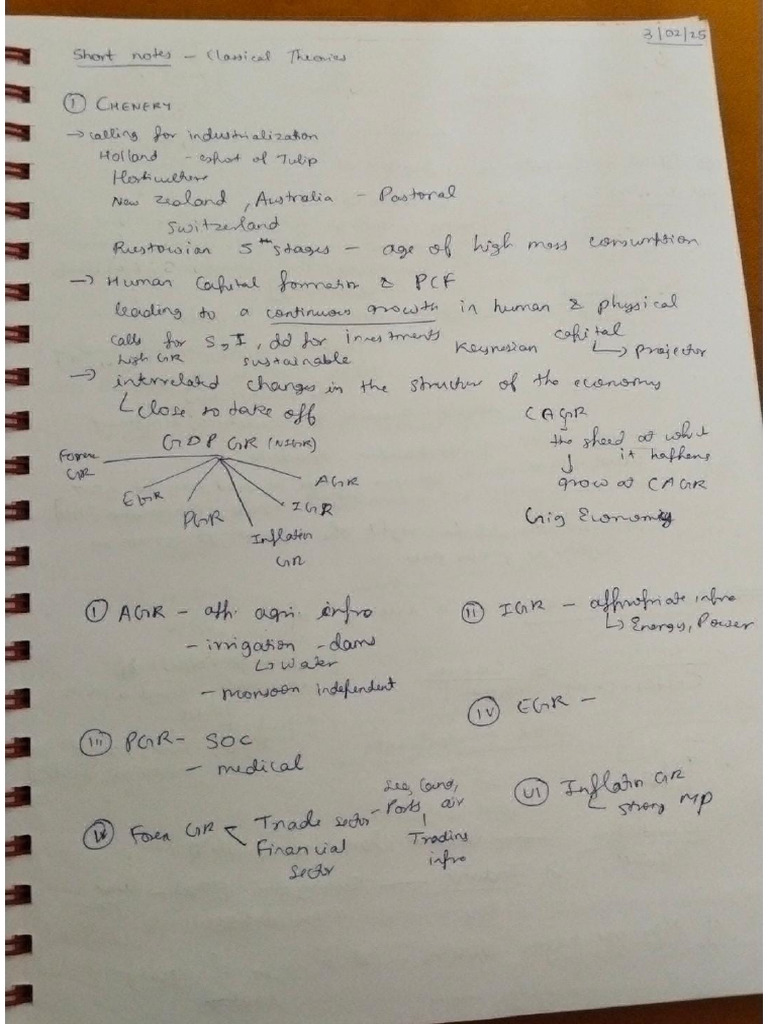 3/02/25
Short notes - Classical Theories
① CHENERY
→ calling for industrialization
Holland - export of Tulip
Horticulture
New Zealand, Australia - Pastoral
Switzerland
Rustowian 5th stages - age of high mass consumption
→ Human Capital formation & PCF
leading to a continuous growth in human & physical
calls for S, I, dd for investments Keynesian capital
high GR sustainable ↳ projector
→ interrelated changes in the structure of the economy
↳ close to take off
CAGR
GDP GR (NIGR)
the speed at which
it happens
↓
grow at CAGR
Gig Economy
Forex
GR
EGR
PGR
Inflation
GR
IGR
AGR
① AGR - app. agri. infra
- irrigation - dams
↳ water
- monsoon independent
ⅱ IGR - appropriate infra
↳ Energy, Power
ⅲ PGR - SOC
- medical
ⅳ EGR -
Forex GR < Trade sector - Ports air
Sea,
Financial
Sector
Trading
infra
ⅵ Inflatin GR
↳ strong MP